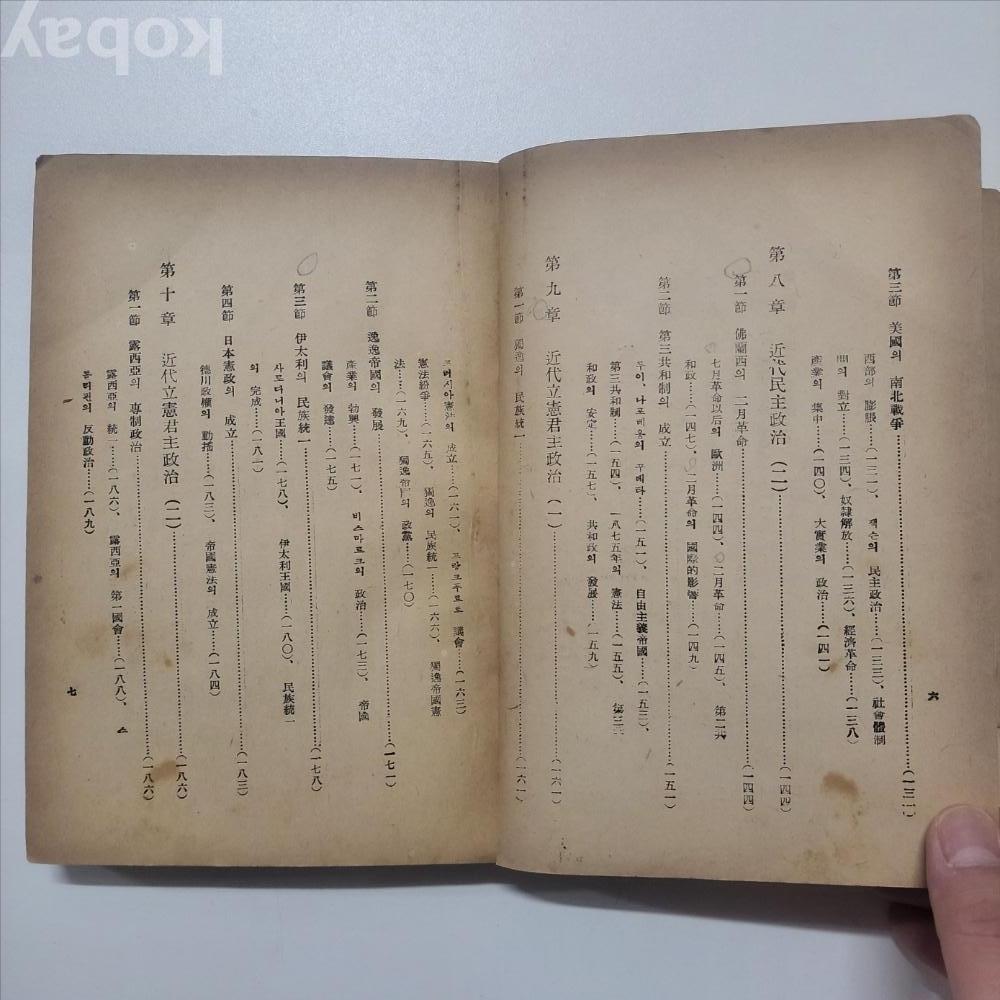 kobay
第三節 美國의 南北戰爭……(一三一)
西部의 膨脹……(一三一)、 잭슨의 民主政治……(一三三)、社會體制
間의 對立……(一三四)、奴隷解放……(一三六)、經濟革命……(一三八)
產業의 集中……(一四〇)、 大實業의 政治……(一四一)
第八章 近代民主政治(二)……(一四四)
第一節 佛蘭西의 二月革命……(一四四)
七月革命以后의 歐洲……(一四四)、二月革命……(一四五)、 第二共
和政……(一四七)、二月革命의 國際的影響……(一四九)
第二節 第三共和制의 成立……(一五一)
루이、나포레옹의 쿠데타……(一五一)、 自由主義帝國……(一五三)、
第三共和制……(一五四)、 一八七五年의 憲法……(一五五)、 第三共
和政의 安定……(一五七)、 共和政의 發展……(一五九)
第九章 近代立憲君主政治(一)……(一六一)
第一節 獨逸의 民族統一……(一六一)
六
프러시아憲法의 成立……(一六一)、 프랑크푸르트 議會……(一六三)
憲法紛爭……(一六五)、 獨逸의 民族統一……(一六六)、 獨逸帝國憲
法……(一六九)、 獨逸帝國의 政黨……(一七〇)
第二節 獨逸帝國의 發展……(一七一)
產業의 勃興……(一七一)、 비스마르크의 政治……(一七三)、 帝國
議會의 發達……(一七五)
第三節 伊太利의 民族統一……(一七八)
사르디니아王國……(一七八)、 伊太利王國……(一八〇)、 民族統一
의 完成……(一八一)
第四節 日本憲政의 成立……(一八三)
德川政權의 動搖……(一八三)、 帝國憲法의 成立……(一八四)
第十章 近代立憲君主政治(二)……(一八六)
第一節 露西亞의 專制政治……(一八六)
露西亞의 統一……(一八六)、 露西亞의 第一國會……(一八八)、 스
톨리핀의 反動政治……(一八九)
七